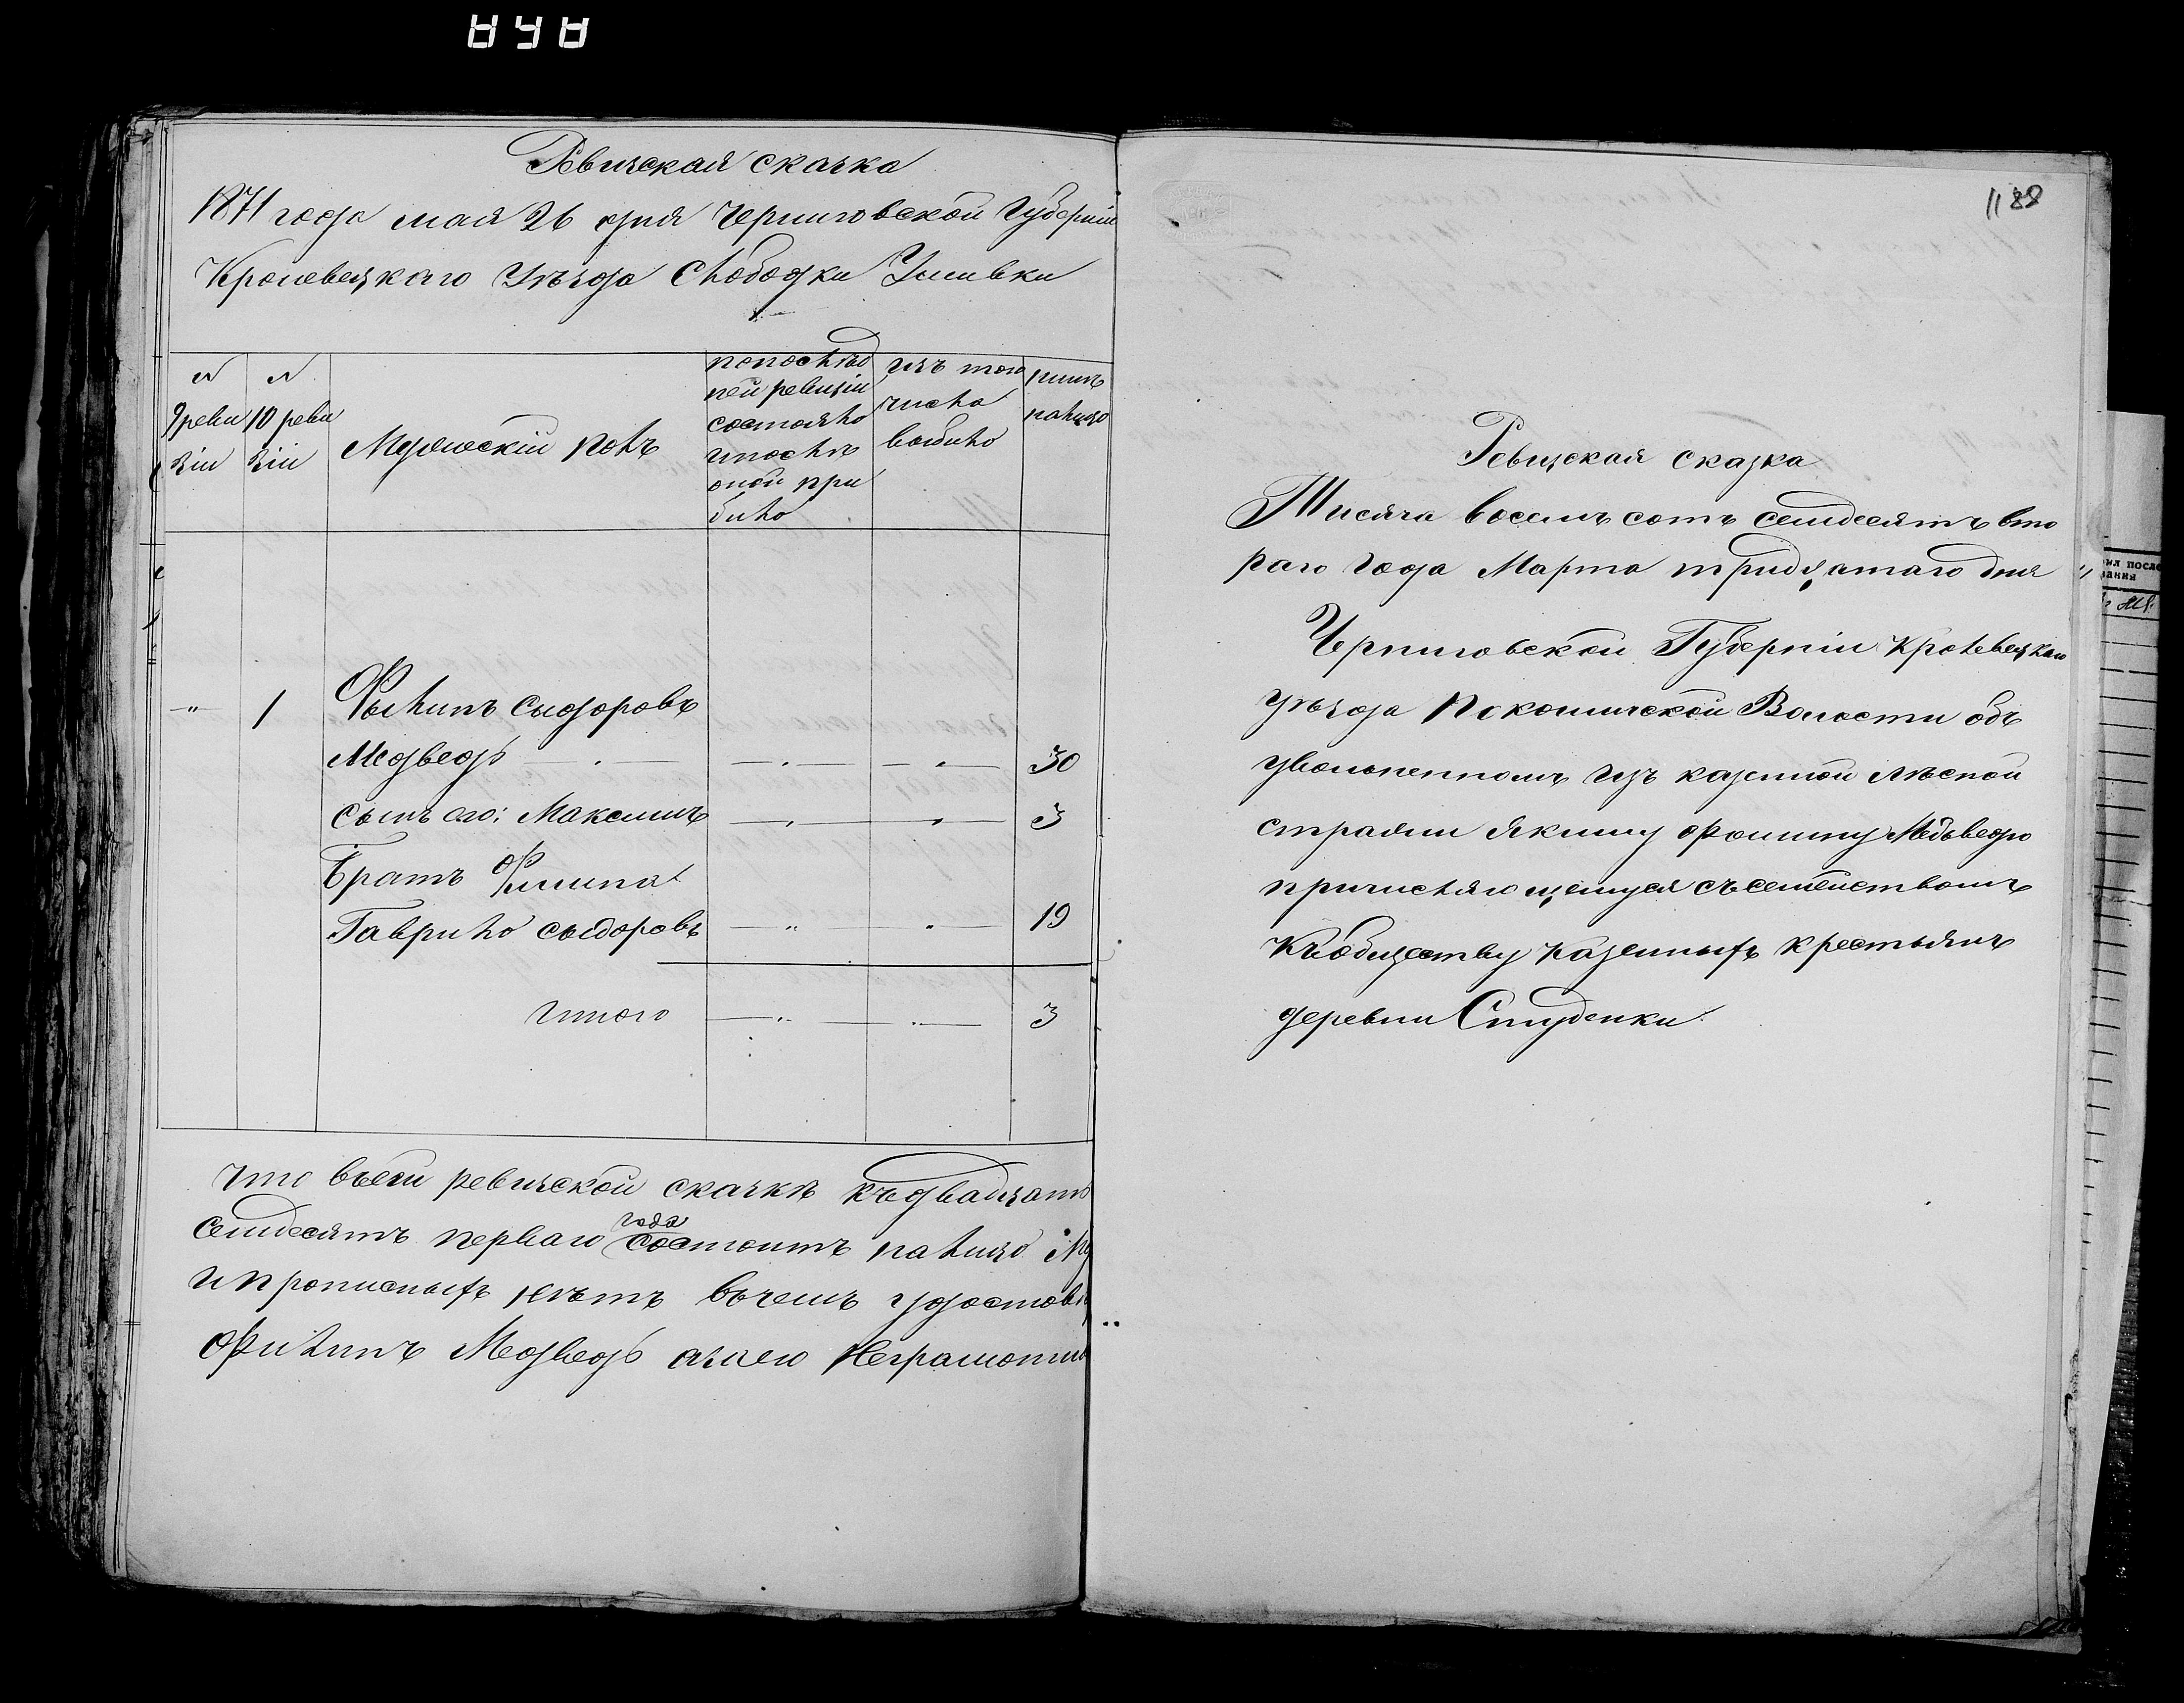 858
Ревизская сказка
1871 года мая 26 дня Черниговской Губернии
Кролевецкаго Уѣзда Слободки
N 9 реви зіи
N 10 реви зіи
Мужескій полъ
попослѣд ней ревизіи состояло ипослѣ оной при било
изъ того числа выбило
нинѣ налицо
1 Филипъ Сыдоровъ
Медведь 30
сынъ его: Максимъ 3
Братъ Филипа
Гаврило Сыдоровъ 19
итого 3
что въсей ревизской сказкѣ къдвадцать
семдесятъ перваго года состоитъ налицо
ипрописныхъ нетъ въчемъ удостовѣ
Филипъ Медведь азаего Неграмотни
1188
Ревизская сказка
Тисяча восемъ сотъ семдесятъ вто
раго года Марта тридцатаго дня
Черниговской Губерніи Кролевецкаго
уѣзда Покошичской Волости объ
уволненномъ изъ казеной лѣсной
стражи Якиму Фомину Медьведю
причисляющемуся съсемействомъ
Къобществу Казенныхъ крестьянъ
деревни Студенки